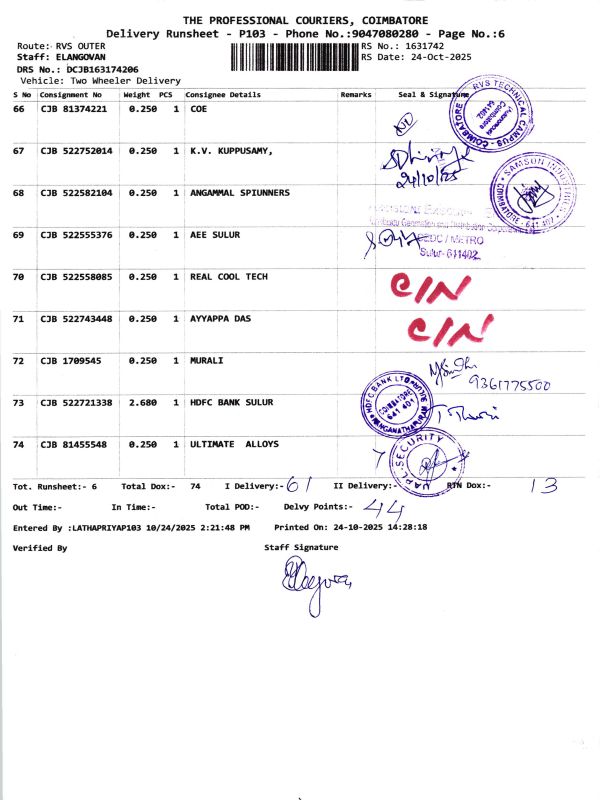 THE PROFESSIONAL COURIERS, COIMBATORE
Delivery Runsheet - P103 - Phone No.:9047080280 - Page No.:6
Route:- RVS OUTER RS No.: 1631742
Staff: ELANGOVAN RS Date: 24-Oct-2025
DRS No.: DCJB163174206
Vehicle: Two Wheeler Delivery
S No Consignment No Weight PCS Consignee Details Remarks Seal & Signature
66 CJB 81374221 0.250 1 COE
RVS TECHNICAL CAMPUS - COIMBATORE
(Autonomous)
Coimbatore
641402
67 CJB 522752014 0.250 1 K.V. KUPPUSAMY,
24/10/25
68 CJB 522582104 0.250 1 ANGAMMAL SPIUNNERS
SAMSON INDUSTRIES
COIMBATORE - 641 402.
69 CJB 522555376 0.250 1 AEE SULUR
Generation and Distribution Corporation
CEDC / METRO
Sulur-641402
70 CJB 522558085 0.250 1 REAL COOL TECH
C/N
71 CJB 522743448 0.250 1 AYYAPPA DAS
C/N
72 CJB 1709545 0.250 1 MURALI
9361775500
73 CJB 522721338 2.680 1 HDFC BANK SULUR
HDFC BANK LTD
COIMBATORE
641 401
RANGANATHAPURAM
74 CJB 81455548 0.250 1 ULTIMATE ALLOYS
SECURITY
UAPL
Tot. Runsheet:- 6 Total Dox:- 74 I Delivery:- 61 II Delivery:- RTN Dox:- 13
Out Time:- In Time:- Total POD:- Delvy Points:- 44
Entered By :LATHAPRIYAP103 10/24/2025 2:21:48 PM Printed On: 24-10-2025 14:28:18
Verified By Staff Signature